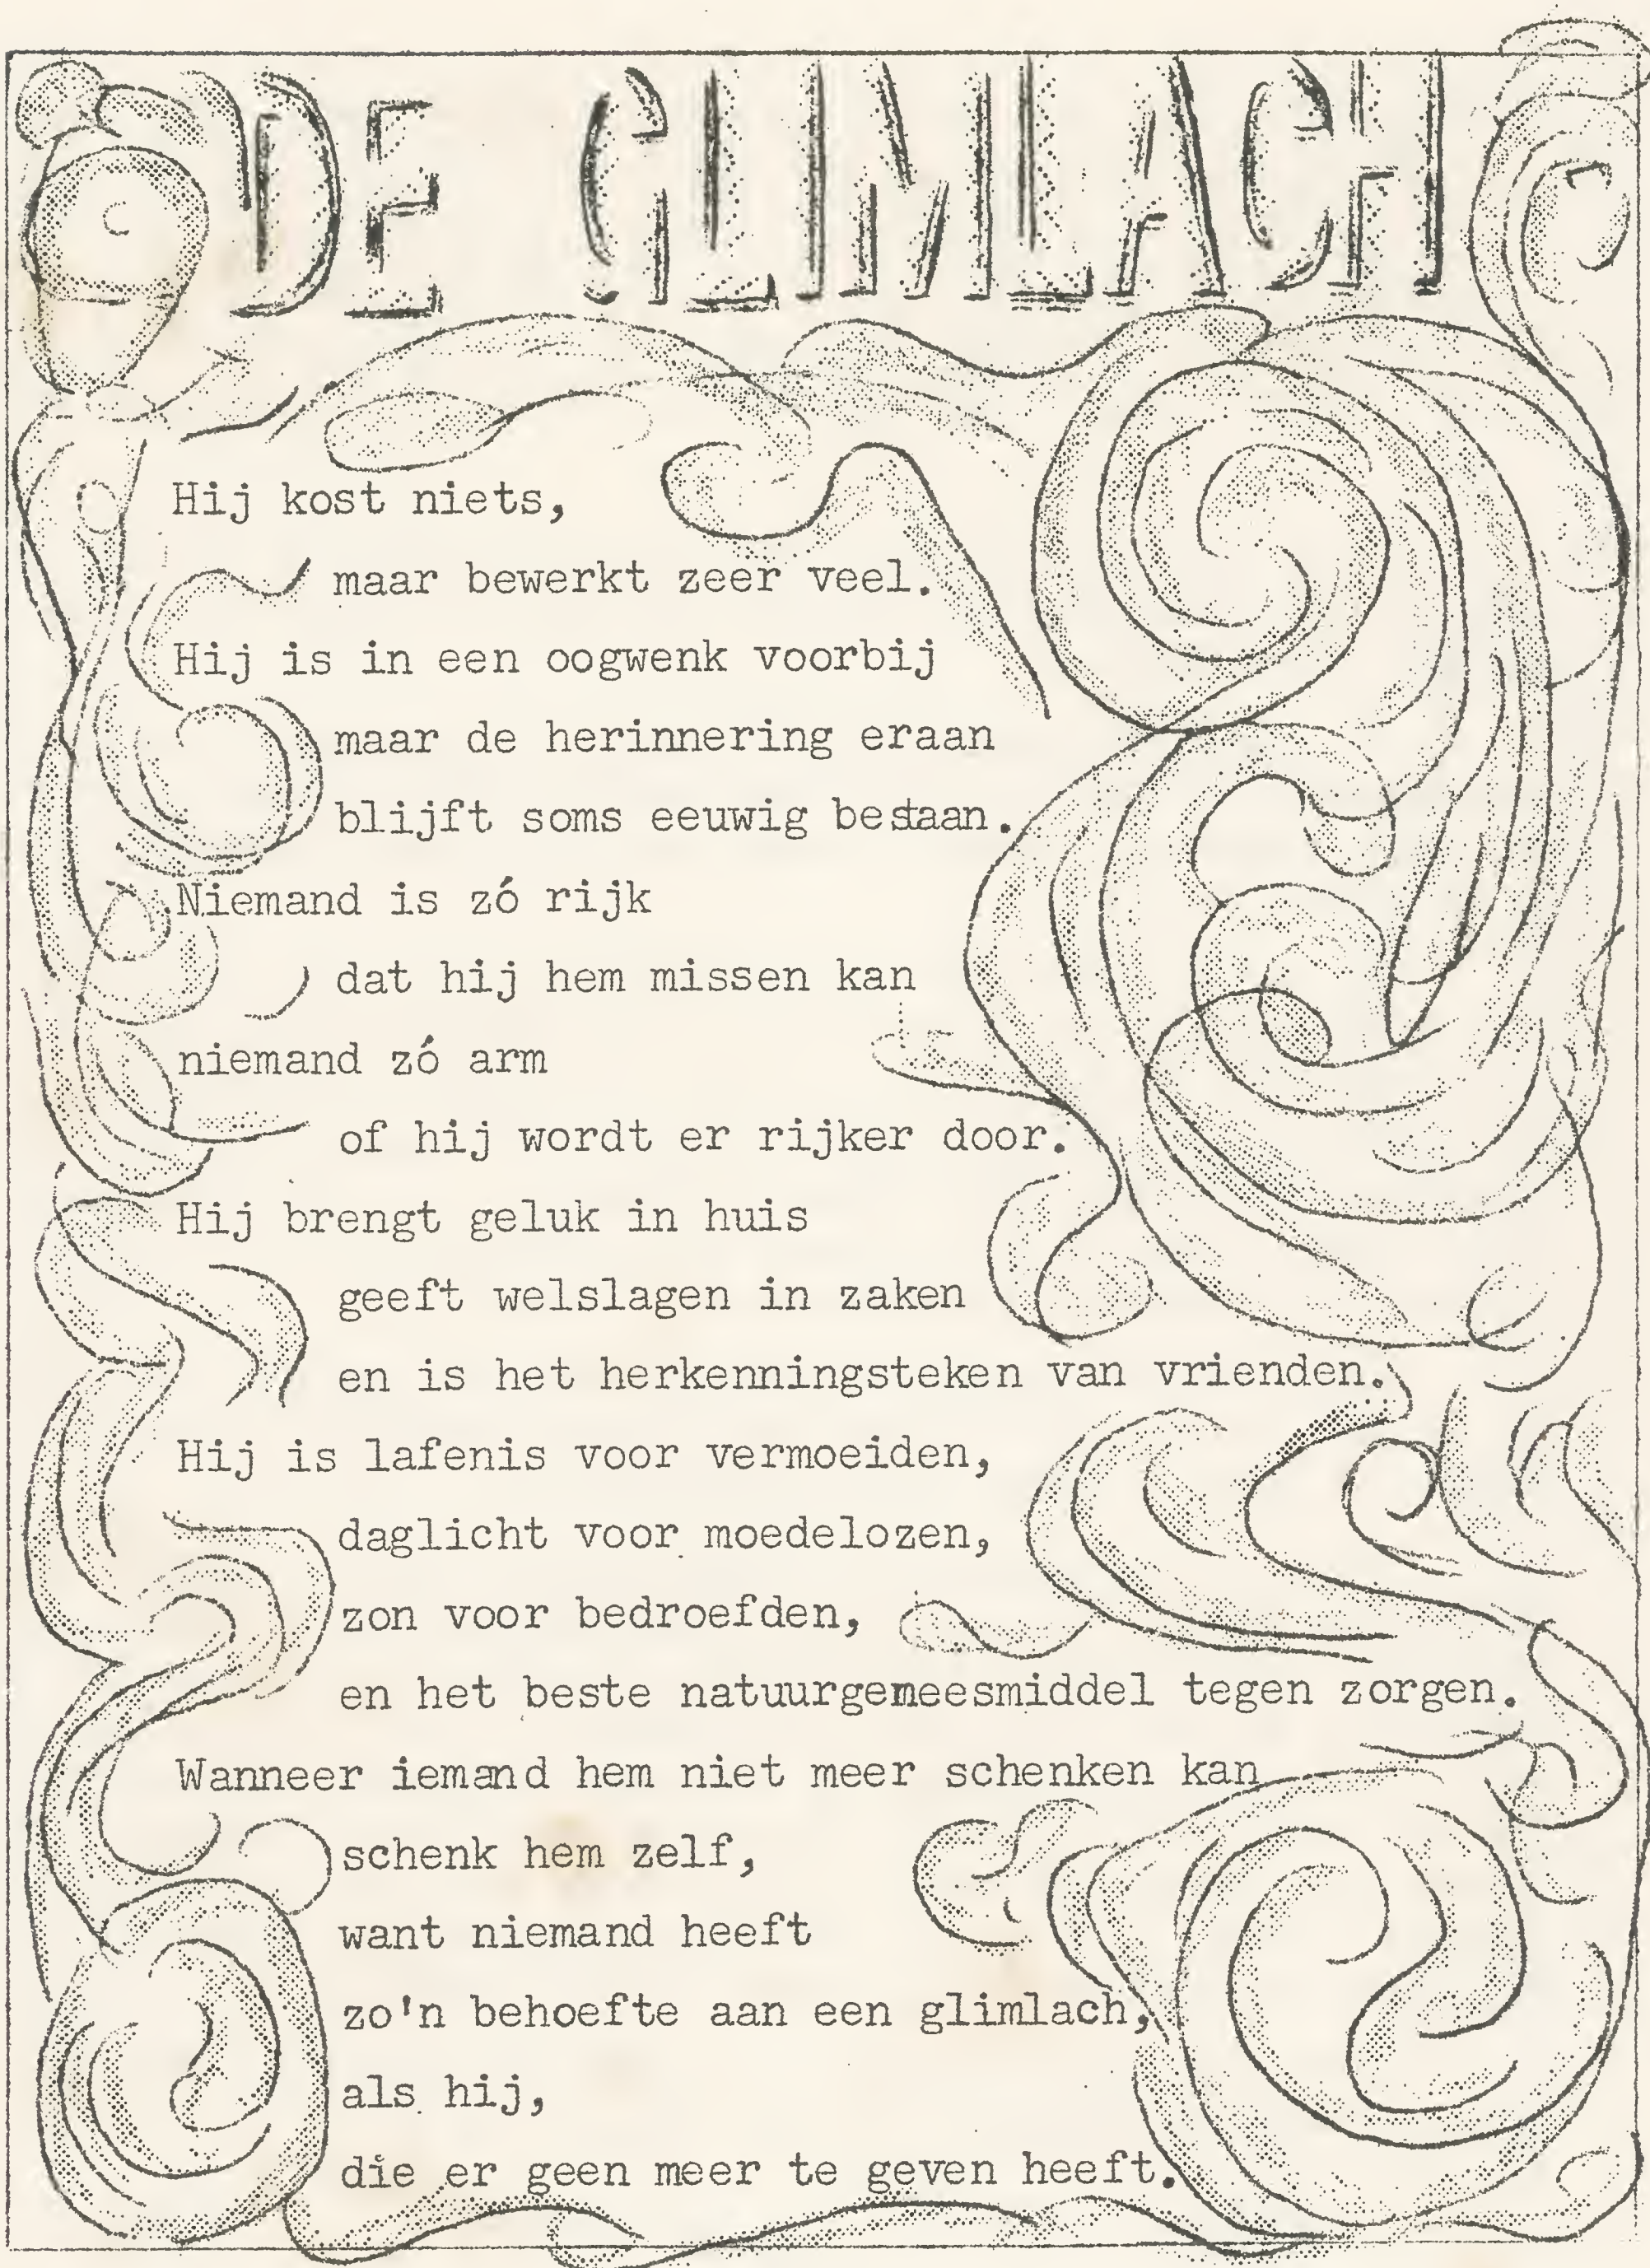 DE GLIMLACH
Hij kost niets,
maar bewerkt zeer veel.
Hij is in een oogwenk voorbij
maar de herinnering eraan
blijft soms eeuwig bestaan.
Niemand is zó rijk
dat hij hem missen kan
niemand zó arm
of hij wordt er rijker door.
Hij brengt geluk in huis
geeft welslagen in zaken
en is het herkenningsteken van vrienden.
Hij is lafenis voor vermoeiden,
daglicht voor moedelozen,
zon voor bedroefden,
en het beste natuurgeneesmiddel tegen zorgen.
Wanneer iemand hem niet meer schenken kan
schenk hem zelf,
want niemand heeft
zo'n behoefte aan een glimlach,
als hij,
die er geen meer te geven heeft.